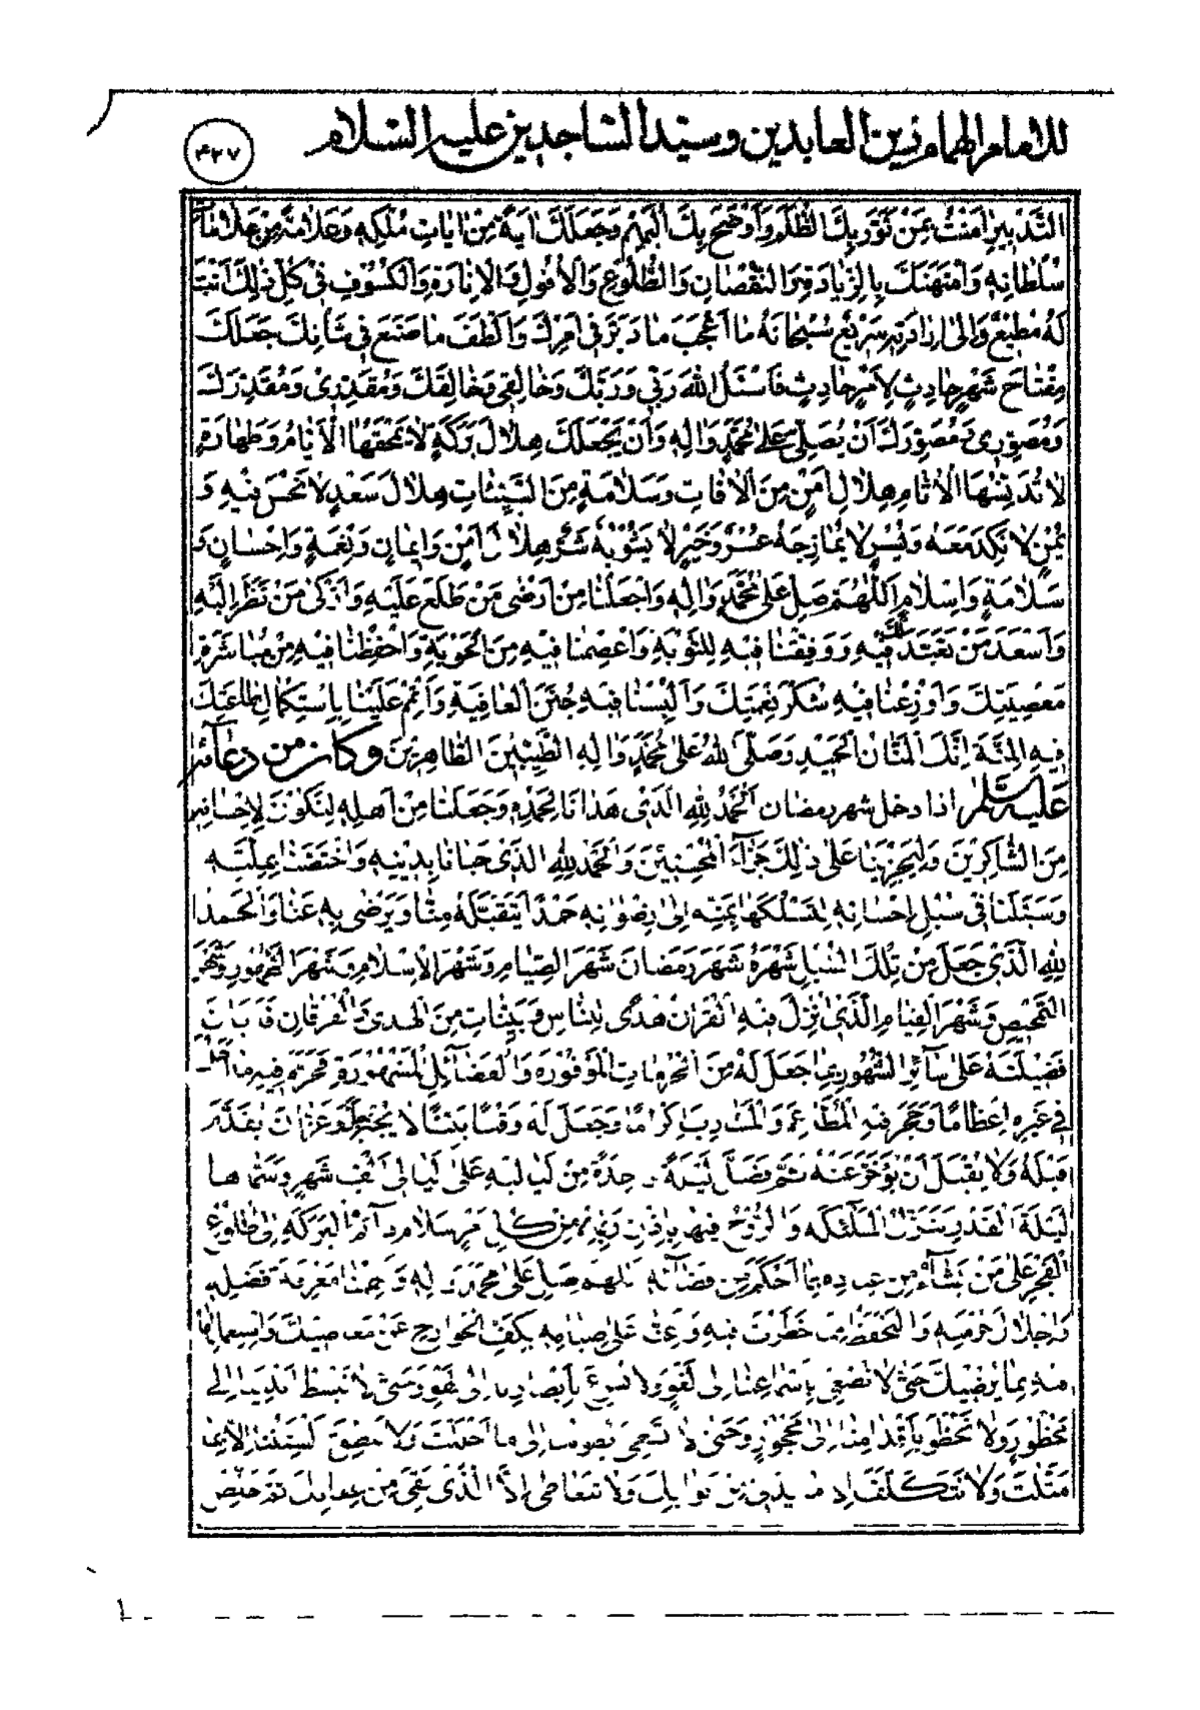 للامام الهمام زين العابدين وسيد الساجدين عليه السلام
۴۲۷
التَّدْبِيرِ امَنْتُ بِمَنْ نَوَّرَ بِكَ الظُّلَمَ وَاَوْضَحَ بِكَ الْبُهَمَ وَجَعَلَكَ ايَةً مِنْ ايَاتِ مُلْكِهِ وَعَلامَةً مِنْ عَلامَاتِ
سُلْطَانِهِ وَامْتَهَنَكَ بِالزِّيَادَةِ وَالنُّقْصَانِ وَالطُّلُوعِ وَالْاُفُولِ وَالْاِنَارَةِ وَالْكُسُوفِ فِي كُلِّ ذلِكَ اَنْتَ
لَهُ مُطِيعٌ وَاِلى اِرَادَتِهِ سَرِيعٌ سُبْحَانَهُ مَا اَعْجَبَ مَا دَبَّرَ فِي اَمْرِكَ وَاَلْطَفَ مَا صَنَعَ فِي شَأْنِكَ جَعَلَكَ
مِفْتَاحَ شَهْرٍ حَادِثٍ لِاَمْرٍ حَادِثٍ فَاَسْئَلُ اللهَ رَبِّي وَرَبَّكَ وَخَالِقِي وَخَالِقَكَ وَمُقَدِّرِي وَمُقَدِّرَكَ
وَمُصَوِّرِي وَمُصَوِّرَكَ اَنْ يُصَلِّيَ عَلى مُحَمَّدٍ وَالِهِ وَاَنْ يَجْعَلَكَ هِلالَ بَرَكَةٍ لا تَمْحَقُهَا الْاَيَّامُ وَطَهَارَةٍ
لا تُدَنِّسُهَا الْاثَامُ هِلالَ اَمْنٍ مِنَ الْافَاتِ وَسَلامَةٍ مِنَ السَّيِّئَاتِ هِلالَ سَعْدٍ لا نَحْسَ فِيهِ وَ
يُمْنٍ لا نَكَدَ مَعَهُ وَيُسْرٍ لا يُمَازِجُهُ عُسْرٌ وَخَيْرٍ لا يَشُوبُهُ شَرٌّ هِلالَ اَمْنٍ وَاِيمَانٍ وَنِعْمَةٍ وَاِحْسَانٍ وَ
سَلامَةٍ وَاِسْلامٍ اَللّهُمَّ صَلِّ عَلى مُحَمَّدٍ وَالِهِ وَاجْعَلْنَا مِنْ اَرْضى مَنْ طَلَعَ عَلَيْهِ وَاَزْكى مَنْ نَظَرَ اِلَيْهِ
وَاَسْعَدَ مَنْ تَعَبَّدَ لَكَ فِيهِ وَوَفِّقْنَا فِيهِ لِلتَّوْبَةِ وَاعْصِمْنَا فِيهِ مِنَ الْحَوْبَةِ وَاحْفَظْنَا فِيهِ مِنْ مُبَاشَرَةِ
مَعْصِيَتِكَ وَاَوْزِعْنَا فِيهِ شُكْرَ نِعْمَتِكَ وَاَلْبِسْنَا فِيهِ جُنَنَ الْعَافِيَةِ وَاَتْمِمْ عَلَيْنَا بِاسْتِكْمَالِ طَاعَتِكَ
فِيهِ الْمِنَّةَ اِنَّكَ الْمَنَّانُ الْحَمِيدُ وَصَلَّى اللهُ عَلى مُحَمَّدٍ وَالِهِ الطَّيِّبِينَ الطَّاهِرِينَ وكان من دعائه
عليه السلام اذا دخل شهر رمضان اَلْحَمْدُ لِلّهِ الَّذِي هَدَانَا لِحَمْدِهِ وَجَعَلَنَا مِنْ اَهْلِهِ لِنَكُونَ لِاِحْسَانِهِ
مِنَ الشَّاكِرِينَ وَلِيَجْزِيَنَا عَلى ذلِكَ جَزَاءَ الْمُحْسِنِينَ وَالْحَمْدُ لِلّهِ الَّذِي حَبَانَا بِدِينِهِ وَاخْتَصَّنَا بِمِلَّتِهِ
وَسَبَّلَنَا فِي سُبُلِ اِحْسَانِهِ لِنَسْلُكَهَا بِمَنِّهِ اِلى رِضْوَانِهِ حَمْدًا يَتَقَبَّلُهُ مِنَّا وَيَرْضى بِهِ عَنَّا وَالْحَمْدُ
لِلّهِ الَّذِي جَعَلَ مِنْ تِلْكَ السُّبُلِ شَهْرَهُ شَهْرَ رَمَضَانَ شَهْرَ الصِّيَامِ وَشَهْرَ الْاِسْلامِ وَشَهْرَ الطَّهُورِ وَشَهْرَ
التَّمْحِيصِ وَشَهْرَ الْقِيَامِ الَّذِي اُنْزِلَ فِيهِ الْقُرْانُ هُدًى لِلنَّاسِ وَبَيِّنَاتٍ مِنَ الْهُدى وَالْفُرْقَانِ فَاَبَانَ
فَضِيلَتَهُ عَلى سَائِرِ الشُّهُورِ بِمَا جَعَلَ لَهُ مِنَ الْحُرُمَاتِ الْمَوْفُورَةِ وَالْفَضَائِلِ الْمَشْهُورَةِ فَحَرَّمَ فِيهِ مَا اَحَلَّ
فِي غَيْرِهِ اِعْظَامًا وَحَجَرَ فِيهِ الْمَطَاعِمَ وَالْمَشَارِبَ اِكْرَامًا وَجَعَلَ لَهُ وَقْتًا بَيِّنًا لا يُجِيزُ جَلَّ وَعَزَّ اَنْ يُقَدَّمَ
قَبْلَهُ وَلا يَقْبَلُ اَنْ يُؤَخَّرَ عَنْهُ ثُمَّ فَضَّلَ لَيْلَةً وَاحِدَةً مِنْ لَيَالِيهِ عَلى لَيَالِي اَلْفِ شَهْرٍ وَسَمَّاهَا
لَيْلَةَ الْقَدْرِ تَنَزَّلُ الْمَلئِكَةُ وَالرُّوحُ فِيهَا بِاِذْنِ رَبِّهِمْ مِنْ كُلِّ اَمْرٍ سَلامٌ دَائِمُ الْبَرَكَةِ اِلى طُلُوعِ
الْفَجْرِ عَلى مَنْ يَشَاءُ مِنْ عِبَادِهِ بِمَا اَحْكَمَ مِنْ قَضَائِهِ اَللّهُمَّ صَلِّ عَلى مُحَمَّدٍ وَالِهِ وَاَلْهِمْنَا مَعْرِفَةَ فَضْلِهِ
وَاِجْلالَ حُرْمَتِهِ وَالتَّحَفُّظَ مِمَّا حَظَرْتَ فِيهِ وَاَعِنَّا عَلى صِيَامِهِ بِكَفِّ الْجَوَارِحِ عَنْ مَعَاصِيكَ وَاسْتِعْمَالِهَا
فِيهِ بِمَا يُرْضِيكَ حَتّى لا نُصْغِيَ بِاَسْمَاعِنَا اِلى لَغْوٍ وَلا نُسْرِعَ بِاَبْصَارِنَا اِلى لَهْوٍ وَحَتّى لا نَبْسُطَ اَيْدِيَنَا اِلى
مَحْظُورٍ وَلا نَخْطُوَ بِاَقْدَامِنَا اِلى مَحْجُورٍ وَحَتّى لا تَعِيَ بُطُونُنَا اِلا مَا اَحْلَلْتَ وَلا تَنْطِقَ اَلْسِنَتُنَا اِلا بِمَا
مَثَّلْتَ وَلا نَتَكَلَّفَ اِلا مَا يُدْنِي مِنْ ثَوَابِكَ وَلا نَتَعَاطى اِلا الَّذِي يَقِي مِنْ عِقَابِكَ ثُمَّ خَلِّصْ